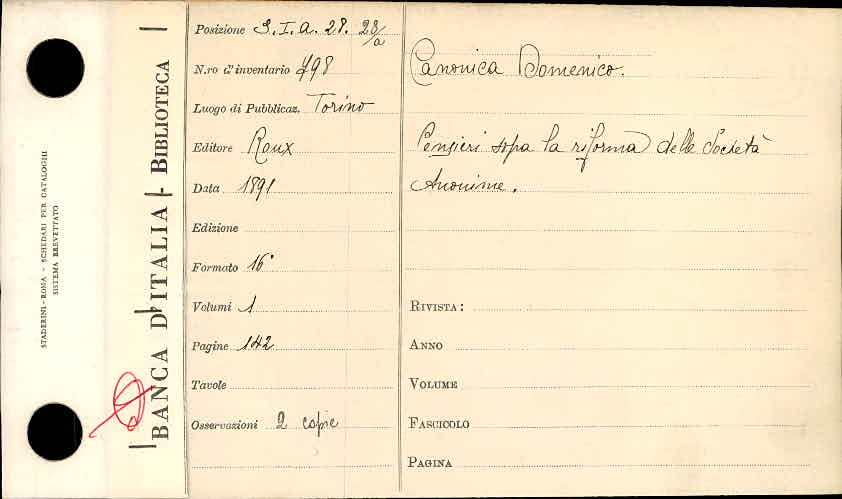 STADERINI - ROMA - SCHEDARI PER CATALOGHI
SISTEMA BREVETTATO
BANCA D'ITALIA - BIBLIOTECA
Posizione S.I.A. 28. 28/a
N.ro d'inventario 798
Luogo di Pubblicaz. Torino
Editore Roux
Data 1891
Edizione
Formato 16°
Volumi 1
Pagine 142
Tavole
Osservazioni 2 copie
Canonica Domenico.
Pensieri sopra la riforma delle Società
Anonime.
RIVISTA:
ANNO
VOLUME
FASCICOLO
PAGINA